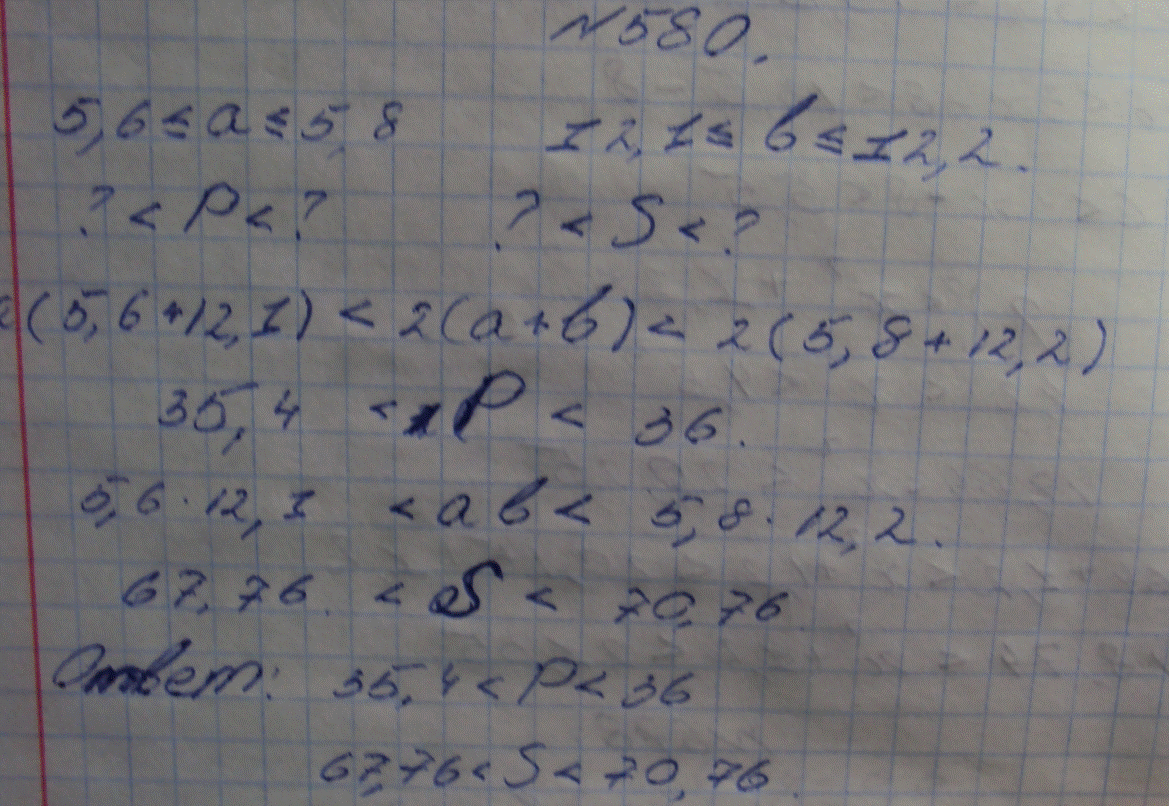 №580.
5,6 ≤ a ≤ 5,8 12,1 ≤ b ≤ 12,2.
? < P < ? ? < S < ?
2(5,6+12,1) < 2(a+b) < 2(5,8+12,2)
35,4 < P < 36.
5,6·12,1 < ab < 5,8·12,2.
67,76. < S < 70,76.
Ответ: 35,4 < P < 36
67,76 < S < 70,76.